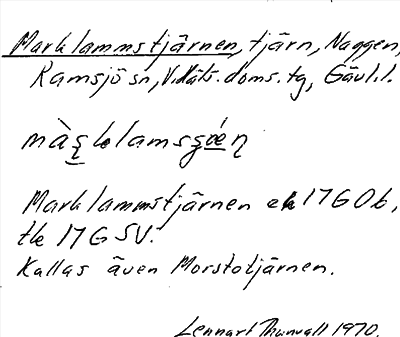 Marklammstjärnen, tjärn, Naggen,
Ramsjö sn, V. Häls. doms. tg, Gävl. l.
Marklammstjärnen ek 17G0b,
tk 17G SV.
Kallas även Morstotjärnen.
Lennart Thunvall 1970.